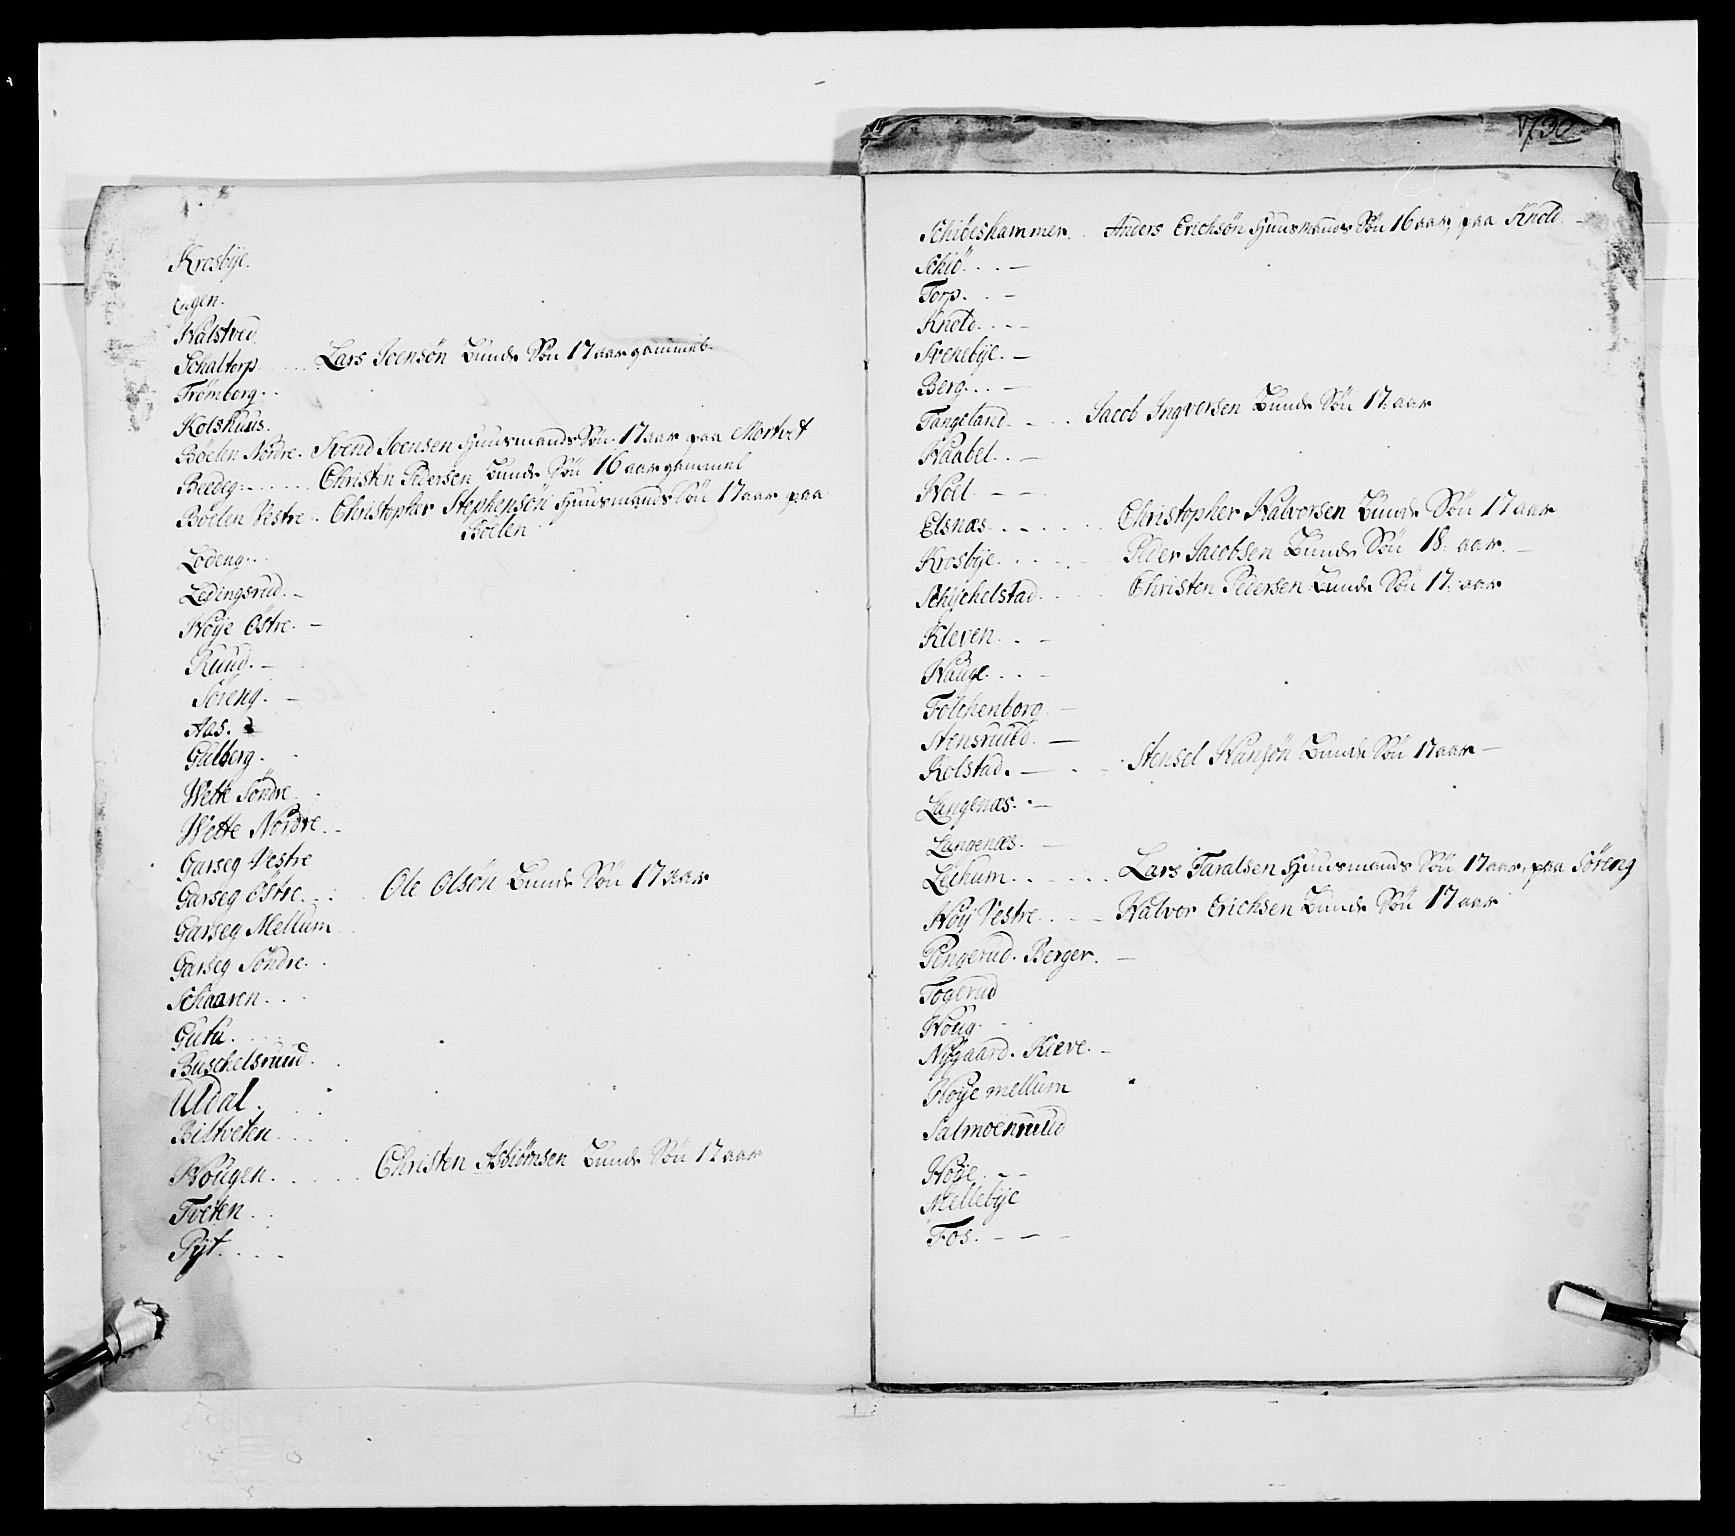 Krosbÿe.
Eigen.
Halstved
Schaltorp. Lars Joensön Bunde Sön 17 aar gammel.
Trömborg.
Kolshuus.
Böelen Nordre. Svend Joensen Huusmands Sön. 17 aar paa Mortvet
Beedeg. Christen Pedersen Bunde Sön 16 aar gammel
Böelen Vestre. Christopher Stephensön Huusmands Sön 17 aar paa
Böelen
Lödeng.
Ledingsrud.
Höÿe Östre.
Ruud.
Söreng.
Aas.
Gulberg.
Wette Söndre.
Wette Nordre.
Garseg Vestre
Garseg Östre. Ole Olsön Bunde Sön 17 aar
Garseg Mellum
Garseg Söndre.
Schaaren.
Gutu.
Buschelsruud.
Uldal.
Biltveten.
Hougen. Christen Asbiörnsen Bunde Sön 17 aar
Tveten.
Pÿt.
1730
Schibeshammer. Anders Erichsön Huusmands Sön 16 aar, paa Knold
Schiö.
Torp.
Knold.
Svenebÿe.
Berg.
Tangeland. Jacob Ingversen Bunde Sön 17. aar
Haabel.
Holt.
Elsnæs. Christopher Halvorsen Bunde Sön 17 aar
Krosbÿe. Peder Jacobsen Bunde Sön 18. aar.
Schÿchelstad. Christen Pedersen Bunde Sön 17. aar
Kleven.
Hauge.
Folchenborg.
Stensruud.
Kolstad. Stensel Hansön Bunde Sön 17 aar
Langenæs.
Langenæs.
Lechum. Lars Taralsen Huusmands Sön 17 aar, paa Söreng
Höij Vestre. Halvor Erichsen Bunde Sön 17 aar
Pengerud. Berger.
Togerud
Houg.
Nÿgaard. Kleve.
Höÿe mellum
Salmoenruud
Höÿe.
Mellebÿe
Fos.